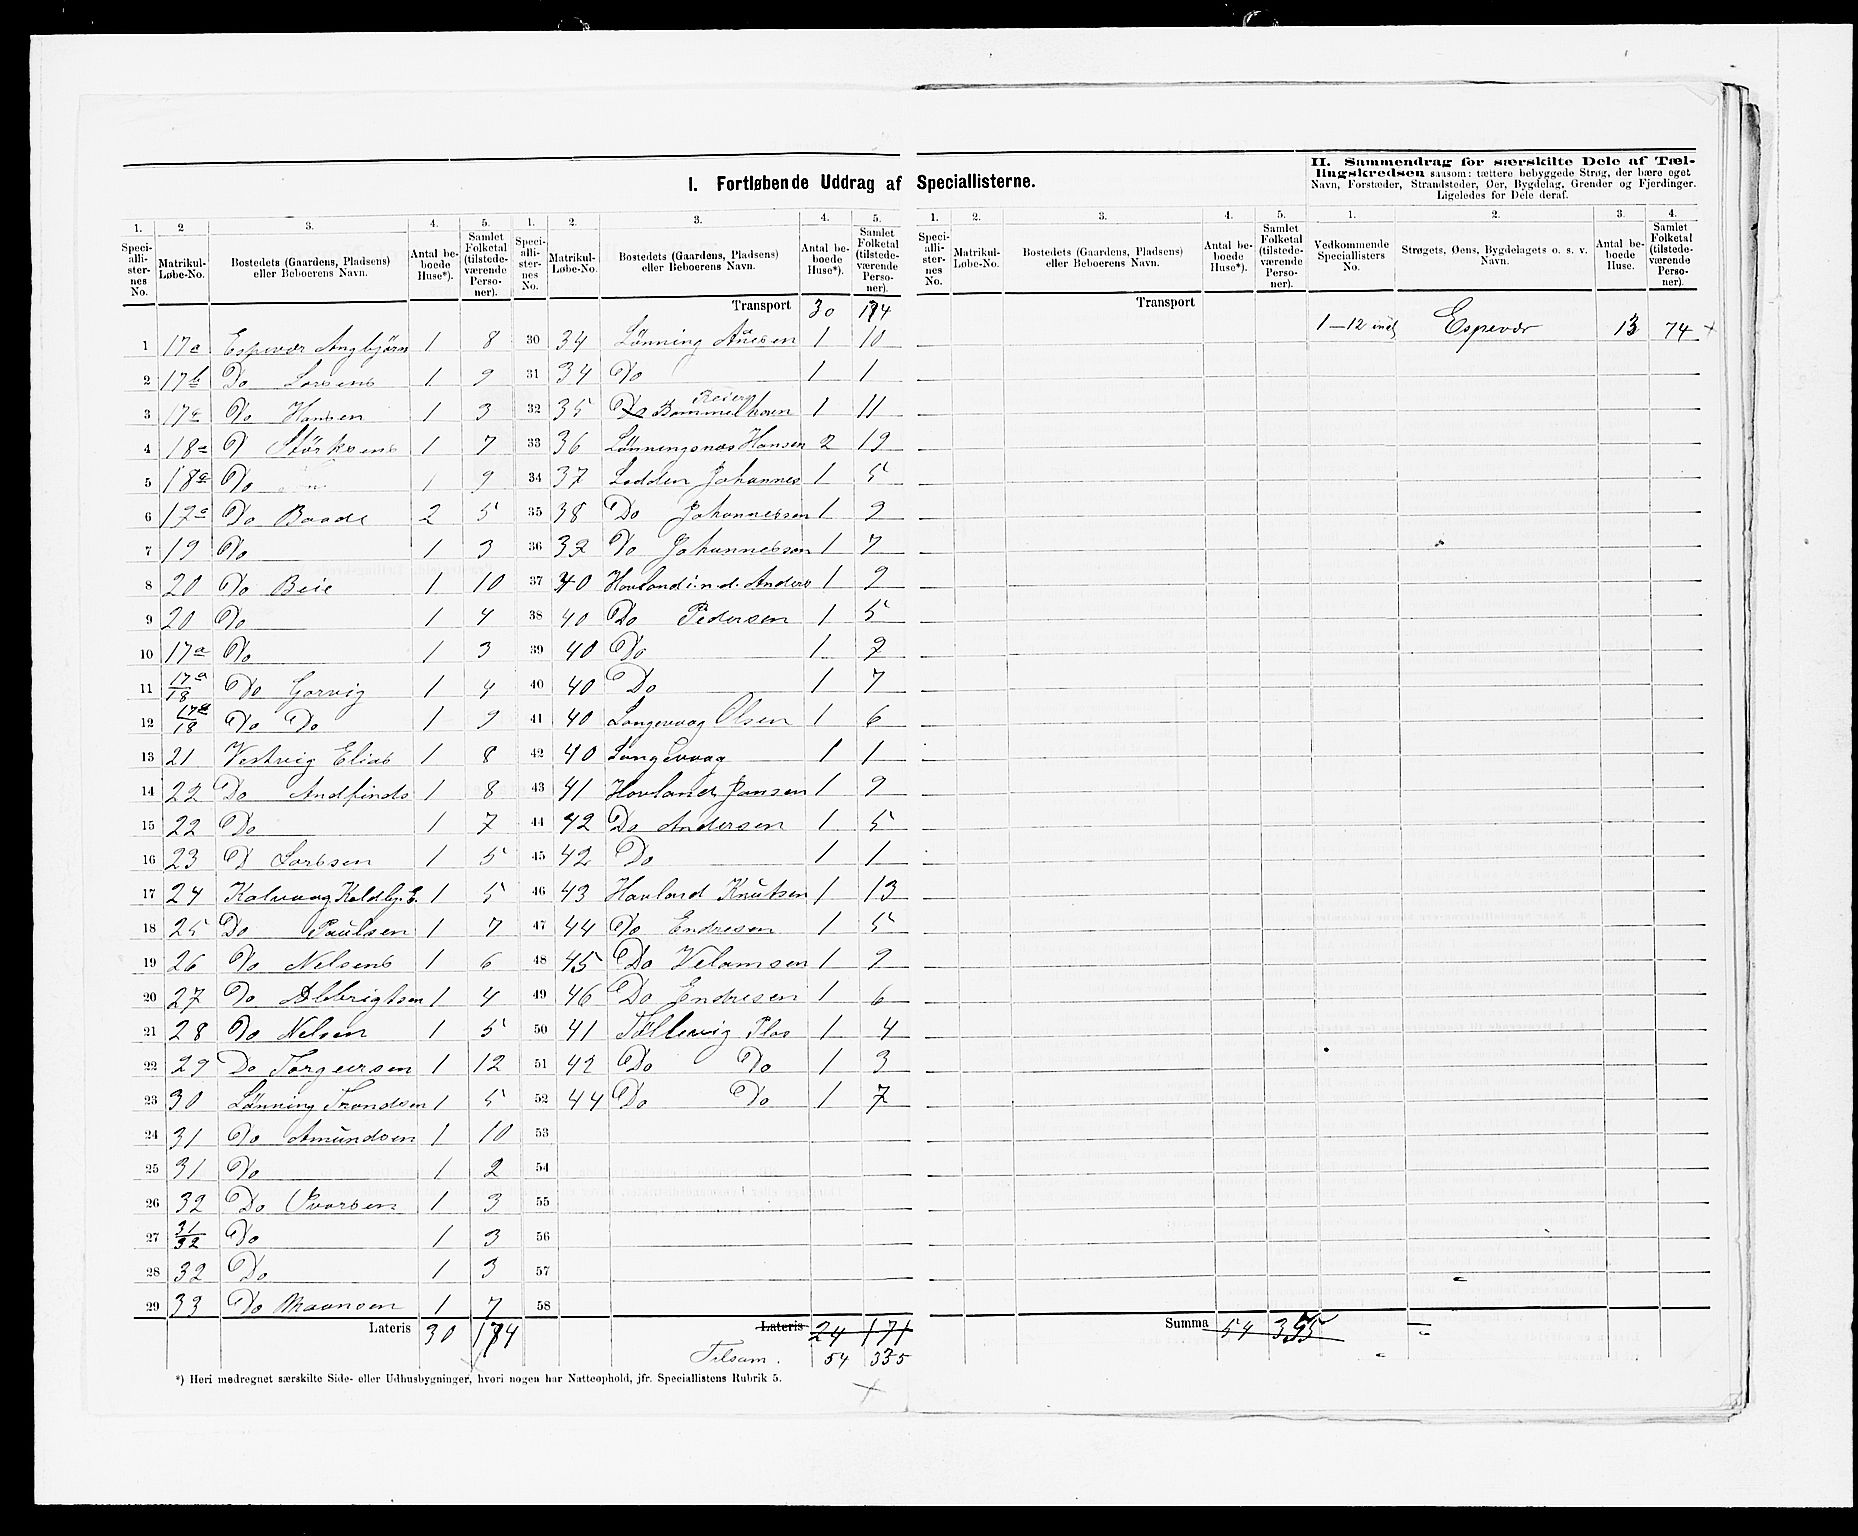 I. Fortløbende Uddrag af Speciallisterne.
II. Sammendrag for særskilte Dele af Tæl-
lingskredsen saasom: tættere bebyggede Strøg, der bære eget
Navn, Forstæder, Strandsteder, Øer, Bygdelag, Grender og Fjerdinger.
Ligeledes for Dele deraf.
1. 2 3. 4. 5. 1. 2. 3. 4. 5. 1. 2. 3. 4. 5. 1. 2. 3. 4.
Speciallisternes No. Matrikul-Løbe-No. Bostedets (Gaardens, Pladsens) eller Beboerens Navn. Antal beboede Huse*). Samlet Folketal (tilstedeværende Personer).
Speciallisternes No. Matrikul-Løbe-No. Bostedets (Gaardens, Pladsens) eller Beboerens Navn. Antal beboede Huse*). Samlet Folketal (tilstedeværende Personer).
Speciallisternes No. Matrikul-Løbe-No. Bostedets (Gaardens, Pladsens) eller Beboerens Navn. Antal beboede Huse*). Samlet Folketal (tilstedeværende Personer).
Vedkommende Speciallisters No. Strøgets, Øens, Bygdelagets o. s. v. Navn. Antal beboede Huse. Samlet Folketal (tilstedeværende Personer).
Transport 30
Transport
1—12 incl Espevær 13 74
1 17a Espevær Angbjörn 1 8
2 17b Do Larsens 1 9
3 17c Do Hansen 1 3
4 18a D Störksens 1 7
5 18a Do 1 9
6 Do Baade 2 5
7 19 Do 1 3
8 20 Do Beie 1 10
9 20 Do 1 4
10 17a Do 1 3
11 17a/18 Do Gorvig 1 4
12 17a/18 Do Do 1 9
13 21 Vestvig Elias 1 8
14 22 Do Andfinds 1 8
15 22 Do 1 7
16 23 D Larssen 1 5
17 24 Kalvaag Koldbj. E. 1 5
18 25 Do Paulsen 1 7
19 26 Do Nelsens 1 6
20 27 Do Albrigtsen 1 4
21 28 Do Nelsen 1 5
22 29 Do Torgersen 1 12
23 30 Lønning Trondsen 1 5
24 31 Do Amundsen 1 10
25 31 Do 1 2
26 32 Do 1 3
27 31/32 Do 1 3
28 32 Do 1 3
29 33 Do Maansen 1 7
Lateris 30
30 34 Lønning 1 10
31 34 Do 1 1
32 35 Do Bommelhavn Reiers 1 11
33 36 Lønningsnæs Hansen 2 19
34 37 Ladden Johannes 1 5
35 38 Do Johannessen 1 9
36 39 Do Johannessen 1 7
37 40 Hovland i.n.d. Anders 1 9
38 40 Do Pedersen 1 5
39 40 Do 1
40 40 Do 1 7
41 40 Langevaag Olsen 1 6
42 40 Langevaag 1 1
43 41 Hovland Jansen 1 9
44 42 Do Andersen 1 5
45 42 Do 1 1
46 43 Hovland Knutsen 1 13
47 44 Do Endresen 1 5
48 45 Do Velomsen 1 9
49 46 Do Endresen 1 6
50 41 Tøllevig Plas 1 4
51 42 Do Do 1 3
52 44 Do Do 1 7
53
54
55
56
57
58
Lateris 24 171
Tilsam. 54 335
Summa 54
*) Heri medregnet særskilte Side- eller Udhusbygninger, hvori nogen har Natteophold, jfr. Speciallistens Rubrik 5.